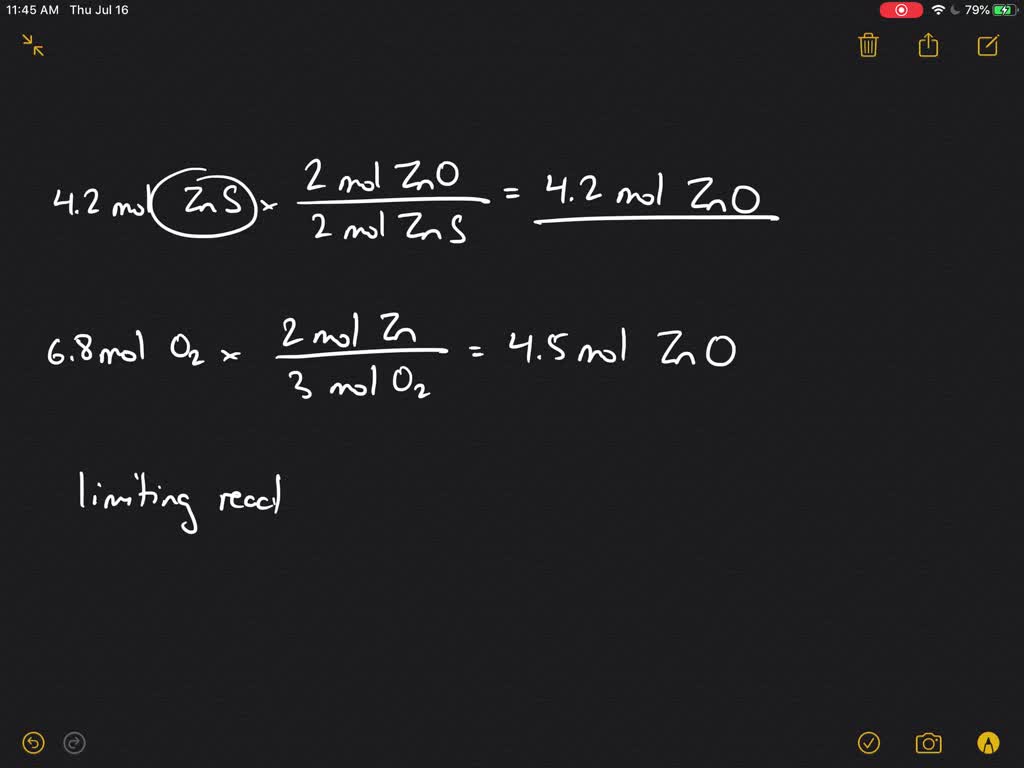 11:45 AM Thu Jul 16 79%
4.2 mol ZnS × 2 mol ZnO / 2 mol ZnS = 4.2 mol ZnO
6.8 mol O₂ × 2 mol Zn / 3 mol O₂ = 4.5 mol ZnO
limiting react